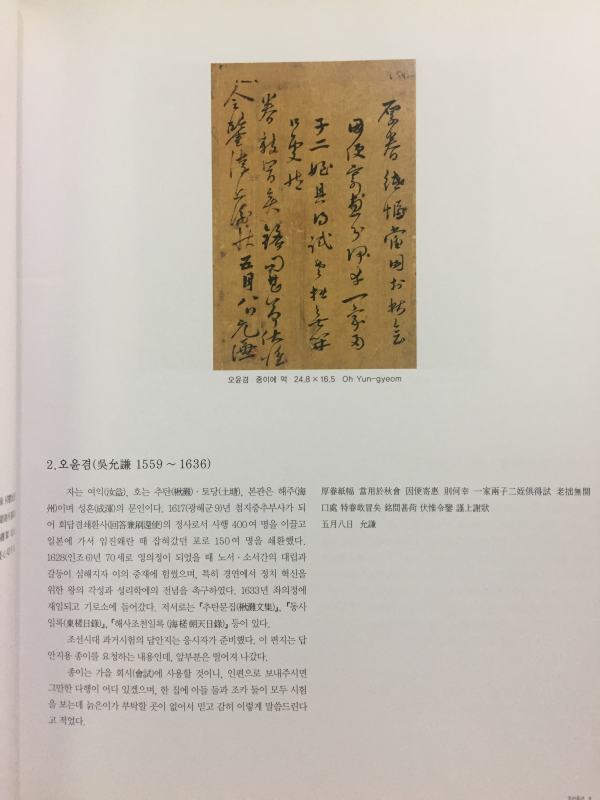 厚眷 紙幅 當用於秋會
因便寄惠 則何幸 一家兩
子二姪俱得試 老拙無開
口處 特
眷敢冒矣 銘問甚荷 伏惟
令鑒 謹上謝狀 五月八日 允謙
오윤겸 종이에 먹 24.8×16.5 Oh Yun-gyeom
2.오윤겸(吳允謙 1559 ~ 1636)
자는 여익(汝益), 호는 추탄(楸灘)·토당(土塘), 본관은 해주(海
州)이며 성혼(成渾)의 문인이다. 1617(광해군9)년 첨지중추부사가 되
어 회답겸쇄환사(回答兼刷還使)의 정사로서 사행 400여 명을 이끌고
일본에 가서 임진왜란 때 잡혀갔던 포로 150여 명을 쇄환했다.
1628(인조6)년 70세로 영의정이 되었을 때 노서·소서간의 대립과
갈등이 심해지자 이의 중재에 힘썼으며, 특히 경연에서 정치 혁신을
위한 왕의 각성과 성리학에의 전념을 촉구하였다. 1633년 좌의정에
재임되고 기로소에 들어갔다. 저서로는 『추탄문집(楸灘文集)』, 『동사
일록(東槎日錄)』, 『해사조천일록(海槎朝天日錄)』 등이 있다.
조선시대 과거시험의 답안지는 응시자가 준비했다. 이 편지는 답
안지용 종이를 요청하는 내용인데, 앞부분은 떨어져 나갔다.
종이는 가을 회시(會試)에 사용할 것이니, 인편으로 보내주시면
그만한 다행이 어디 있겠으며, 한 집에 아들 둘과 조카 둘이 모두 시험
을 보는데 늙은이가 부탁할 곳이 없어서 믿고 감히 이렇게 말씀드린다
고 적었다.
厚眷紙幅 當用於秋會 因便寄惠 則何幸 一家兩子二姪俱得試 老拙無開
口處 特眷敢冒矣 銘問甚荷 伏惟令鑒 謹上謝狀
五月八日 允謙